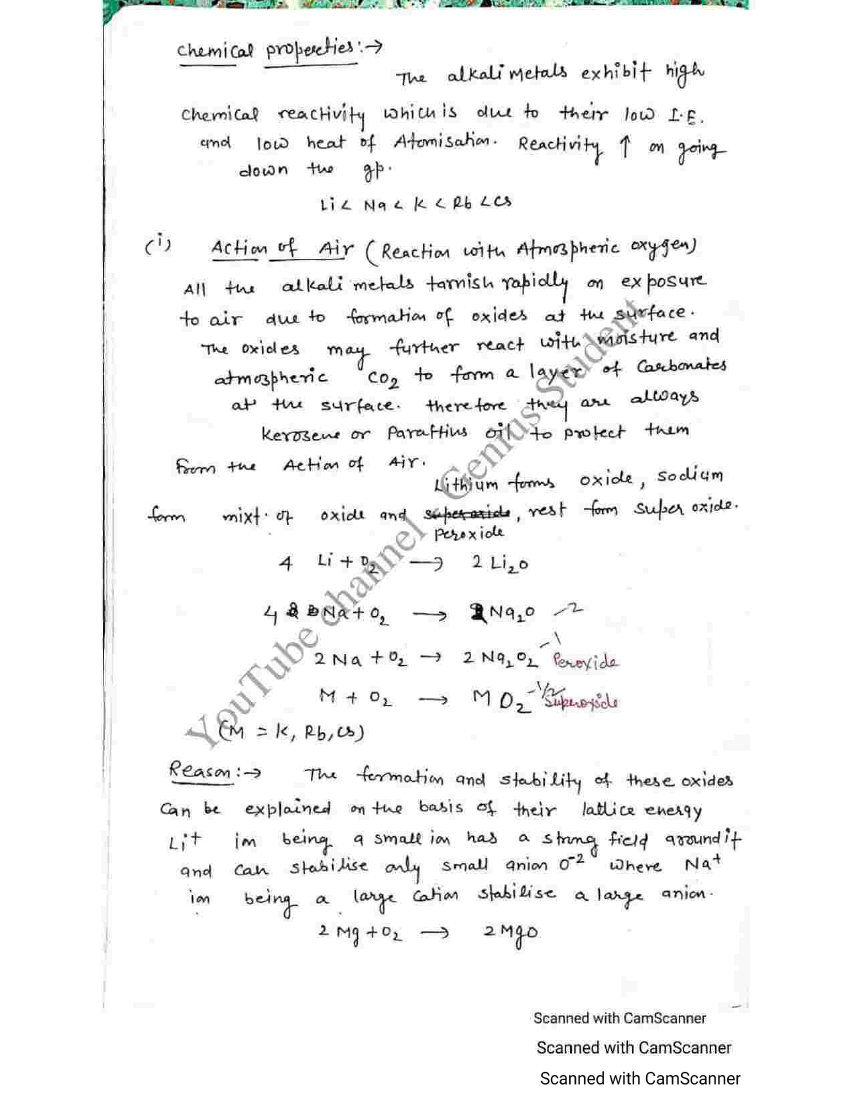 Chemical properties :→
The alkali metals exhibit high
chemical reactivity which is due to their low I.E.
and low heat of Atomisation. Reactivity ↑ on going
down the gp.
Li < Na < K < Rb < Cs
(i) Action of Air (Reaction with Atmospheric oxygen)
All the alkali metals tarnish rapidly on exposure
to air due to formation of oxides at the surface.
The oxides may further react with moisture and
atmospheric CO2 to form a layer of Carbonates
at the surface. therefore they are always
kerosene or Paraffins oil to protect them
from the Action of Air.
Lithium forms oxide, sodium
form mixt. of oxide and superoxide, rest form super oxide.
peroxide
4 Li + O2 → 2 Li2O
4 Na + O2 → 2 Na2O -2
2 Na + O2 → 2 Na2O2 -1 Peroxide
M + O2 → MO2 -1/2 Superoxide
(M = K, Rb, Cs)
Reason :→ The formation and stability of these oxides
can be explained on the basis of their lattice energy
Li+ ion being a small ion has a strong field around it
and can stabilise only small anion O-2 where Na+
ion being a large cation stabilise a large anion.
2 Mg + O2 → 2 MgO
YouTube channel - Genius Student
Scanned with CamScanner
Scanned with CamScanner
Scanned with CamScanner